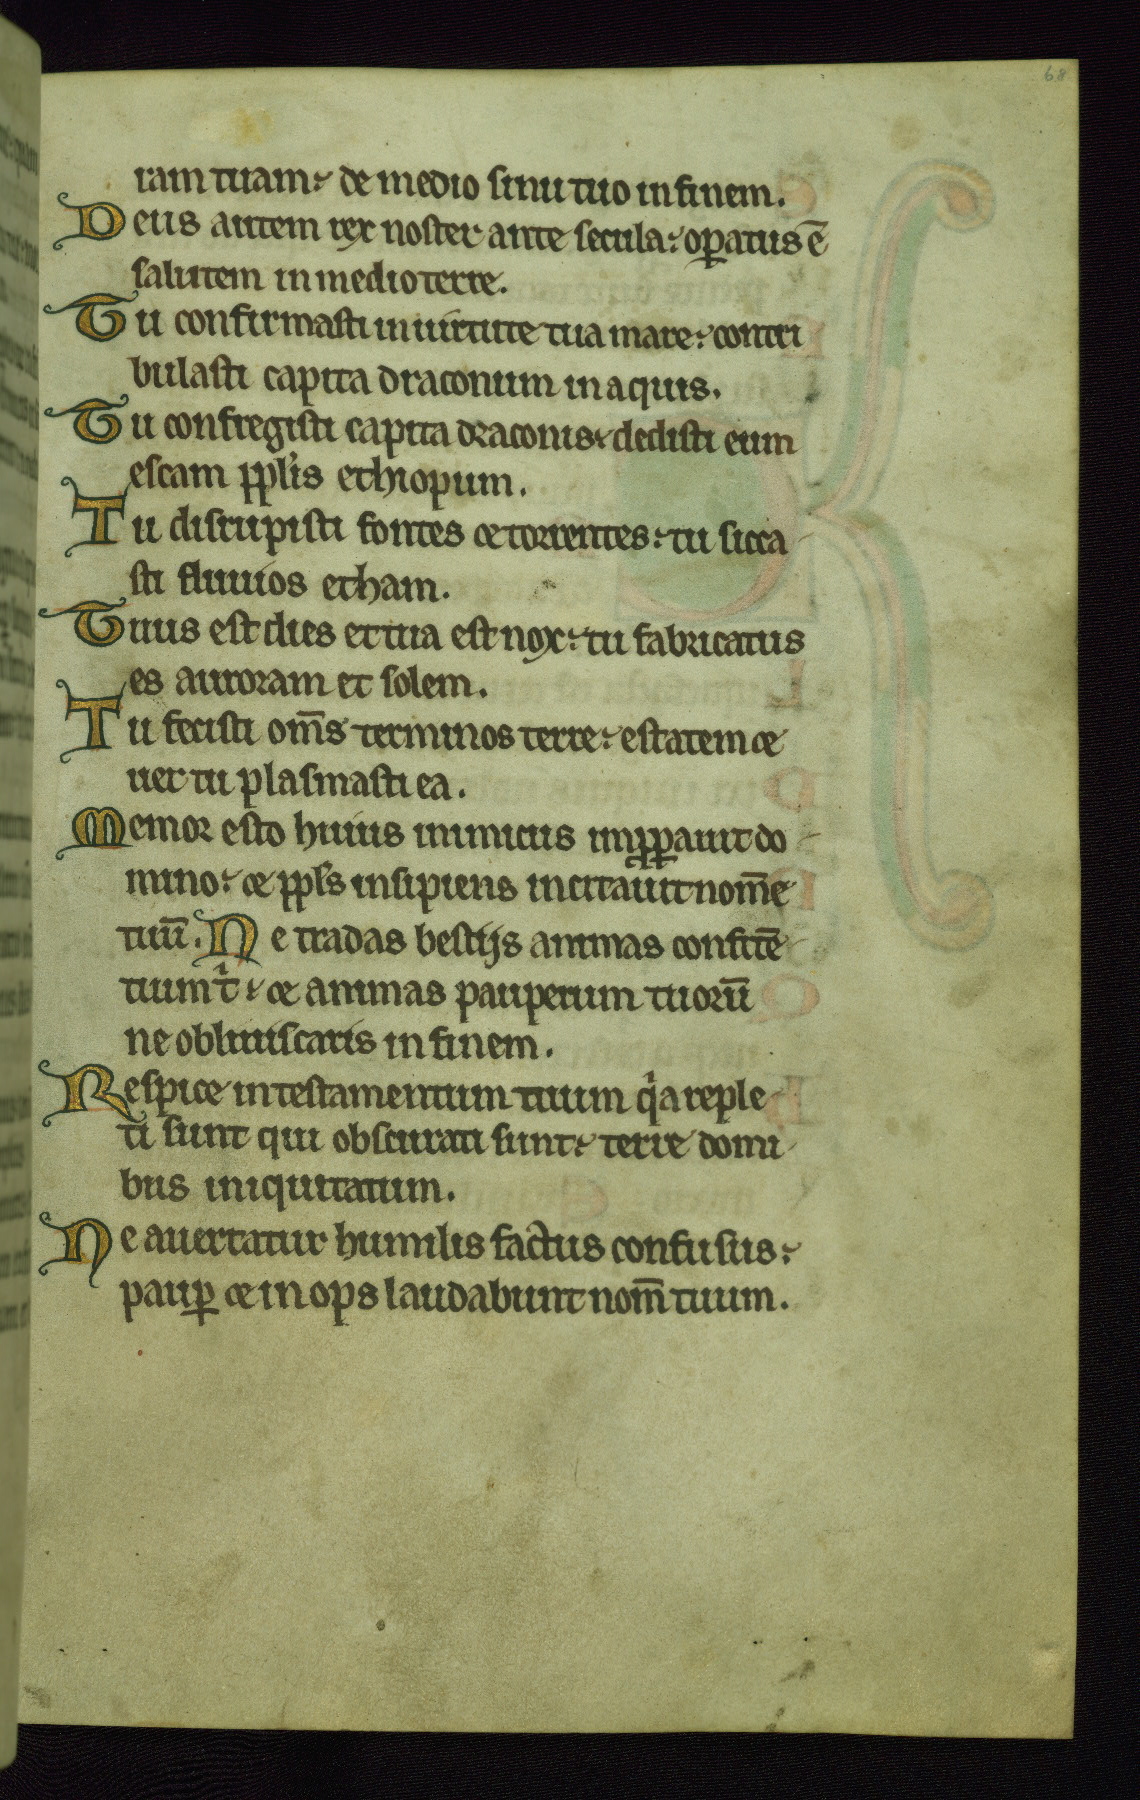 68
ram tuam: de medio sinu tuo in finem.
Deus autem rex noster ante secula: op̄atus ē
salutem in medio terre.
Tu confirmasti in uirtute tua mare: contri
bulasti capita draconum in aquis.
Tu confregisti capita draconis: dedisti eum
escam pp̄lis ethiopum.
Tu disrupisti fontes ⁊ torrentes: tu sicca
sti fluuios etham.
Tuus est dies et tua est nox: tu fabricatus
es auroram et solem.
Tu fecisti om̄s terminos terre: estatem ⁊
uer tu plasmasti ea.
Memor esto huius inimicus imꝓꝑauit do
mino: ⁊ pp̄ls insipiens incitauit nom̄e
tuū. Ne tradas bestijs animas confitē
tium tͥ: ⁊ animas pauperum tuorū
ne obliuiscaris in finem.
Respice in testamentum tuum qͥa reple
ti sunt qui obscurati sunt: terre domi
bus iniquitatum.
Ne auertatur humilis factus confusus:
paupꝑ ⁊ inops laudabunt nom̄ tuum.